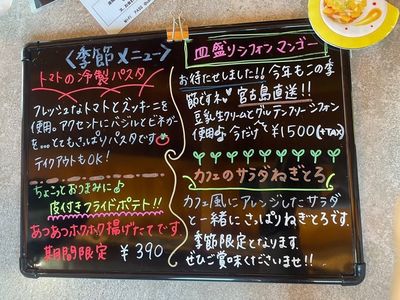 〈季節メニュー〉
トマトの冷製パスタ
フレッシュなトマトとズッキーニを
使用。アクセントにバジルとビネガ
ーを…とてもさっぱりパスタです
テイクアウトもOK!
ちょこっとおつまみに♪
皮付きフライドポテト!!
あつあつホクホク揚げたてです。
期間限定 ¥390
皿盛りシフォンマンゴー
お待たせしました!!今年もこの季
節ですネ♥宮古島直送!!
豆乳生クリームとグルテンフリーシフォン
使用♪今だけで¥1500(+TAX)
カフェのサラダねぎとろ
カフェ風にアレンジしたサラダ
と一緒にさっぱりねぎとろです。
季節限定となります。
ぜひご賞味くださいませ!!